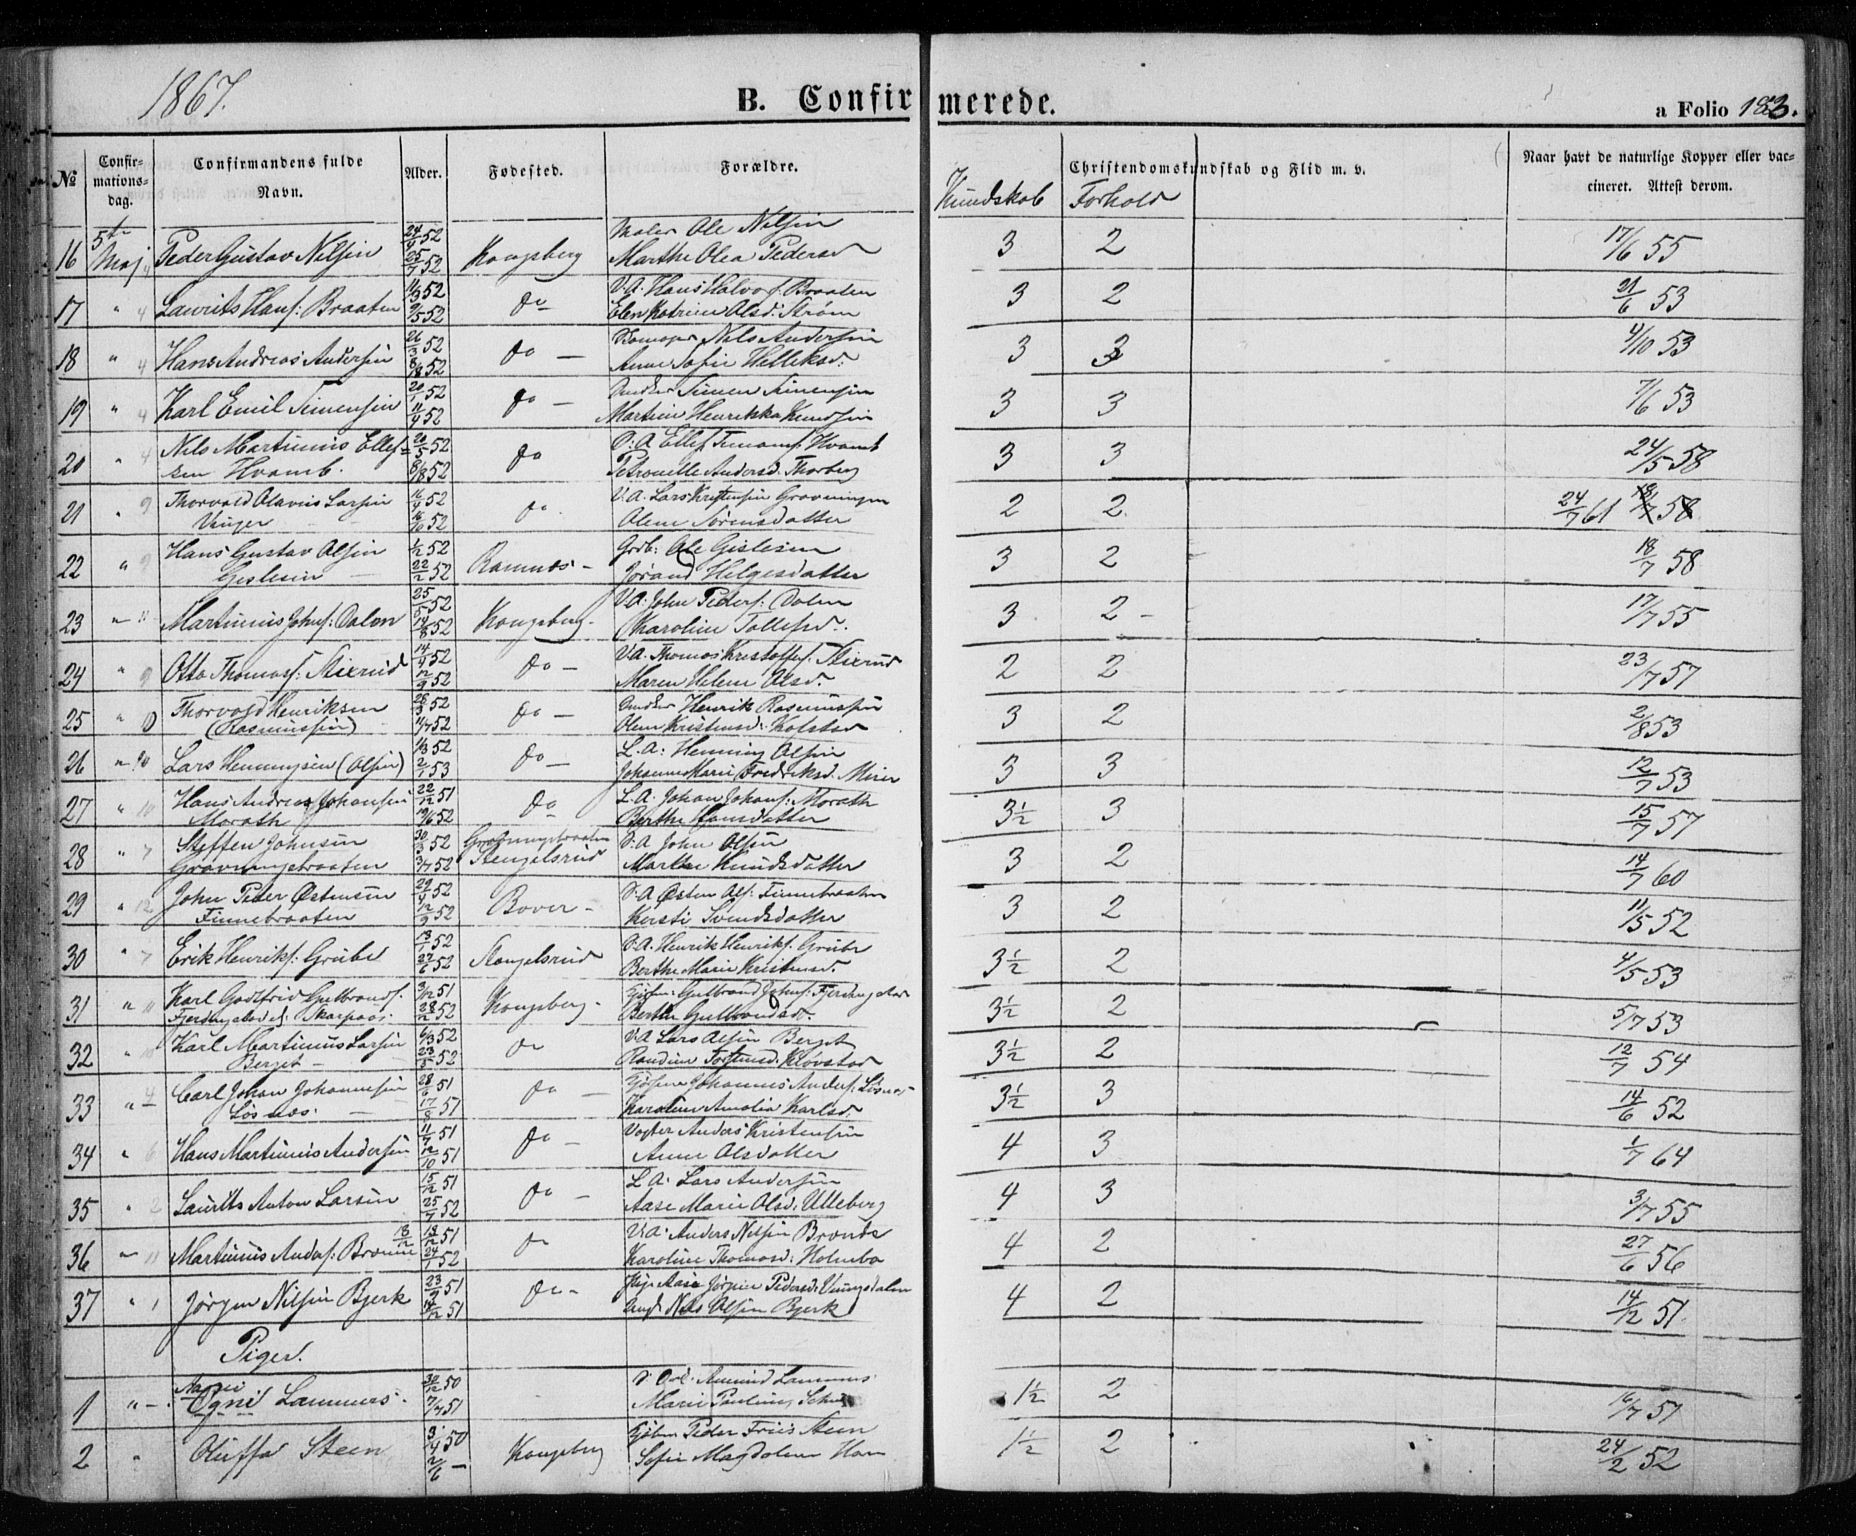 1867.
B. Confirmerede.
a Folio 183.
№ Confirmationsdag. Confirmandens fulde Navn. Alder. Fødested. Forældre. Christendomskundskab og Flid m. v. Naar havt de naturlige Kopper eller vaccineret. Attest derom.
Kundskab Forhold
16 5te Maj Peder Gustav Nilsen 24/4 52 25/7 52 Kongsberg Maler Ole Nilsen
Marthe Olea Pedersd 3 2 17/6 55
17 " 4 Laurits Hans: Braaten 52 9/5 52 do V.A. Hans Halvors: Braaten
Elen Katrine Olsd: Strøm 3 2 21/6 53
18 " 4 Hans Andreas Andersen 26/3 52 8/8 52 do Nils Andersen
Anne Sofie Helliksd. 3 3 4/10 53
19 " 4 Karl Emil Simensen 20/1 52 11/4 52 do Simen Simensen
Martine Henrikka Knudsen 3 3 7/6 53
20 " 4 Nils Martinius Ellef=
sen Hvamb. 20/5 52 8/8 52 do S.A Ellef Hvamb
Petronelle Andersd. Thorberg 3 3 24/5 58
21 " 9 Thorvald Olavus Larsen
Vinger 16/4 52 52 do V.A. Lars Kristensen Gravningen
Olene Sørensdatter 2 2 24/7 61 18/7 58
22 " 9 Hans Gustav Olsen
Gislesen 1/2 52 22/2 52 Ramnæs Grdb: Ole Gislesen
Jørand Helgesdatter 3 2 18/7 58
23 " 11 Martinius Johns: Dalen 25/5 52 14/8 52 Kongsberg V.A. John Peders: Dalen
Karoline Tollefsd. 3 2 17/7 55
24 " 9 Otto Thomas: Stixrud 14/4 52 12/9 52 do V.A. Thomas Kristoffers. Stixrud
Maren Helene Olsd. 2 2 23/7 57
25 " 10 Thorvald Henriksen
(Rasmussen) 28/3 52 11/7 52 do Henrik Rasmussen
Olene Kristensd: Kolstad 3 2 2/8 53
26 " 10 Lars Henningsen (Olsen) 52 2/1 53 do L.A: Henning Olsen
Johanne Marie Fredriksd. Meier 3 3 12/7 53
27 " 10 Hans Andreas Johansen
Morath 22/12 51 19/6 52 do L.A: Johan Johans: Morath
Berthe Hansdatter 3½ 3 15/7 57
28 " 7 Steffen Johnsen
Gravningsbraaten 30/3 52 3/7 52 Gravningsbraaten
Stengelsrud S.A John Olsen
Marthe Knudsdatter 3 2 14/7 60
29 " 12 John Peder Østensen
Finnebraaten 29/4 52 12/9 52 Bover S.A Østen Ols: Finnebraaten
Kersti Svendsdatter 3 2 11/15 52
30 " 7 Erik Henriks: Grube 13/1 52 27/6 52 Stengelsrud S.A. Henrik Henriks: Grube
Berthe Marie Kristensd. 3½ 2 4/5 53
31 " 11 Karl Godtfrid Gulbrands.
Fjerdingstad el. Skarpaas 3/12 51 28/2 52 Kongsberg Gulbrand Johns: Fjerdingstad
Berthe Gulbrandsd. 3½ 2 5/7 53
32 " 10 Karl Martinius Larsen
Berget 6/3 52 23/5 52 do V.A Lars Olsen Berget
Randine Torstensd. Kløvstad 3½ 2 12/7 54
33 " 4 Carl Johan Johannesen
Løsnæs 28/6 51 17/8 51 do Johannes Anders: Løsnæs
Karoline Amalia Karlsd. 3½ 3 14/6 52
34 " 6 Hans Martinius Andersen 11/7 51 12/10 51 do Vogter Anders Kristensen
Anne Olsdatter 4 3 1/7 64
35 " 2 Laurits Anton Larsen 15/12 51 25/7 52 do L A: Lars Andersen
Aase Marie Olsd: Ulleberg 4 3 3/7 55
36 " 11 Martinius Anders: 13/12 13/12 51 24/1 52 do V.A: Anders Nilsen
Karoline Thomasd: Holmbo 4 2 27/6 56
37 " 1 Jørgen Nilsen Bjerk 23/9 51 14/12 51 do Pige Aase Jørgine Pedersd.
Ungk Nils Olsen Bjerk 4 2 14/2 51
Piger.
1 " Aagni
Ogni Lammers 30/12 50 7/4 51 Amund Lammers
Marie Pauline 1½ 2 16/7 51
2 " Oluffa Steen 3/4 50 2/6 — Kongsberg Kjøbm Peder Friis Steen
Sofie Magdalene 1½ 2 24/2 52